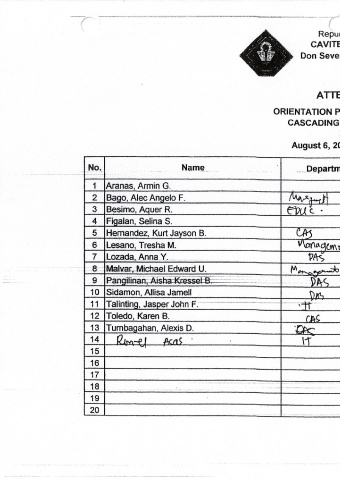 Repu
CAVITE
Don Seve
ATTE
ORIENTATION P
CASCADING
August 6, 20
No. Name Departm
1 Aranas, Armin G.
2 Bago, Alec Angelo F.
3 Besimo, Aquer R. EDUC.
4 Figalan, Selina S.
5 Hernandez, Kurt Jayson B. CAS
6 Lesano, Tresha M. Managem
7 Lozada, Anna Y. DAS
8 Malvar, Michael Edward U.
9 Pangilinan, Aisha Kressel B. DAS
10 Sidamon, Allisa Jamell DAS
11 Talinting, Jasper John F. IT
12 Toledo, Karen B. CAS
13 Tumbagahan, Alexis D. DAS
14 IT
15
16
17
18
19
20